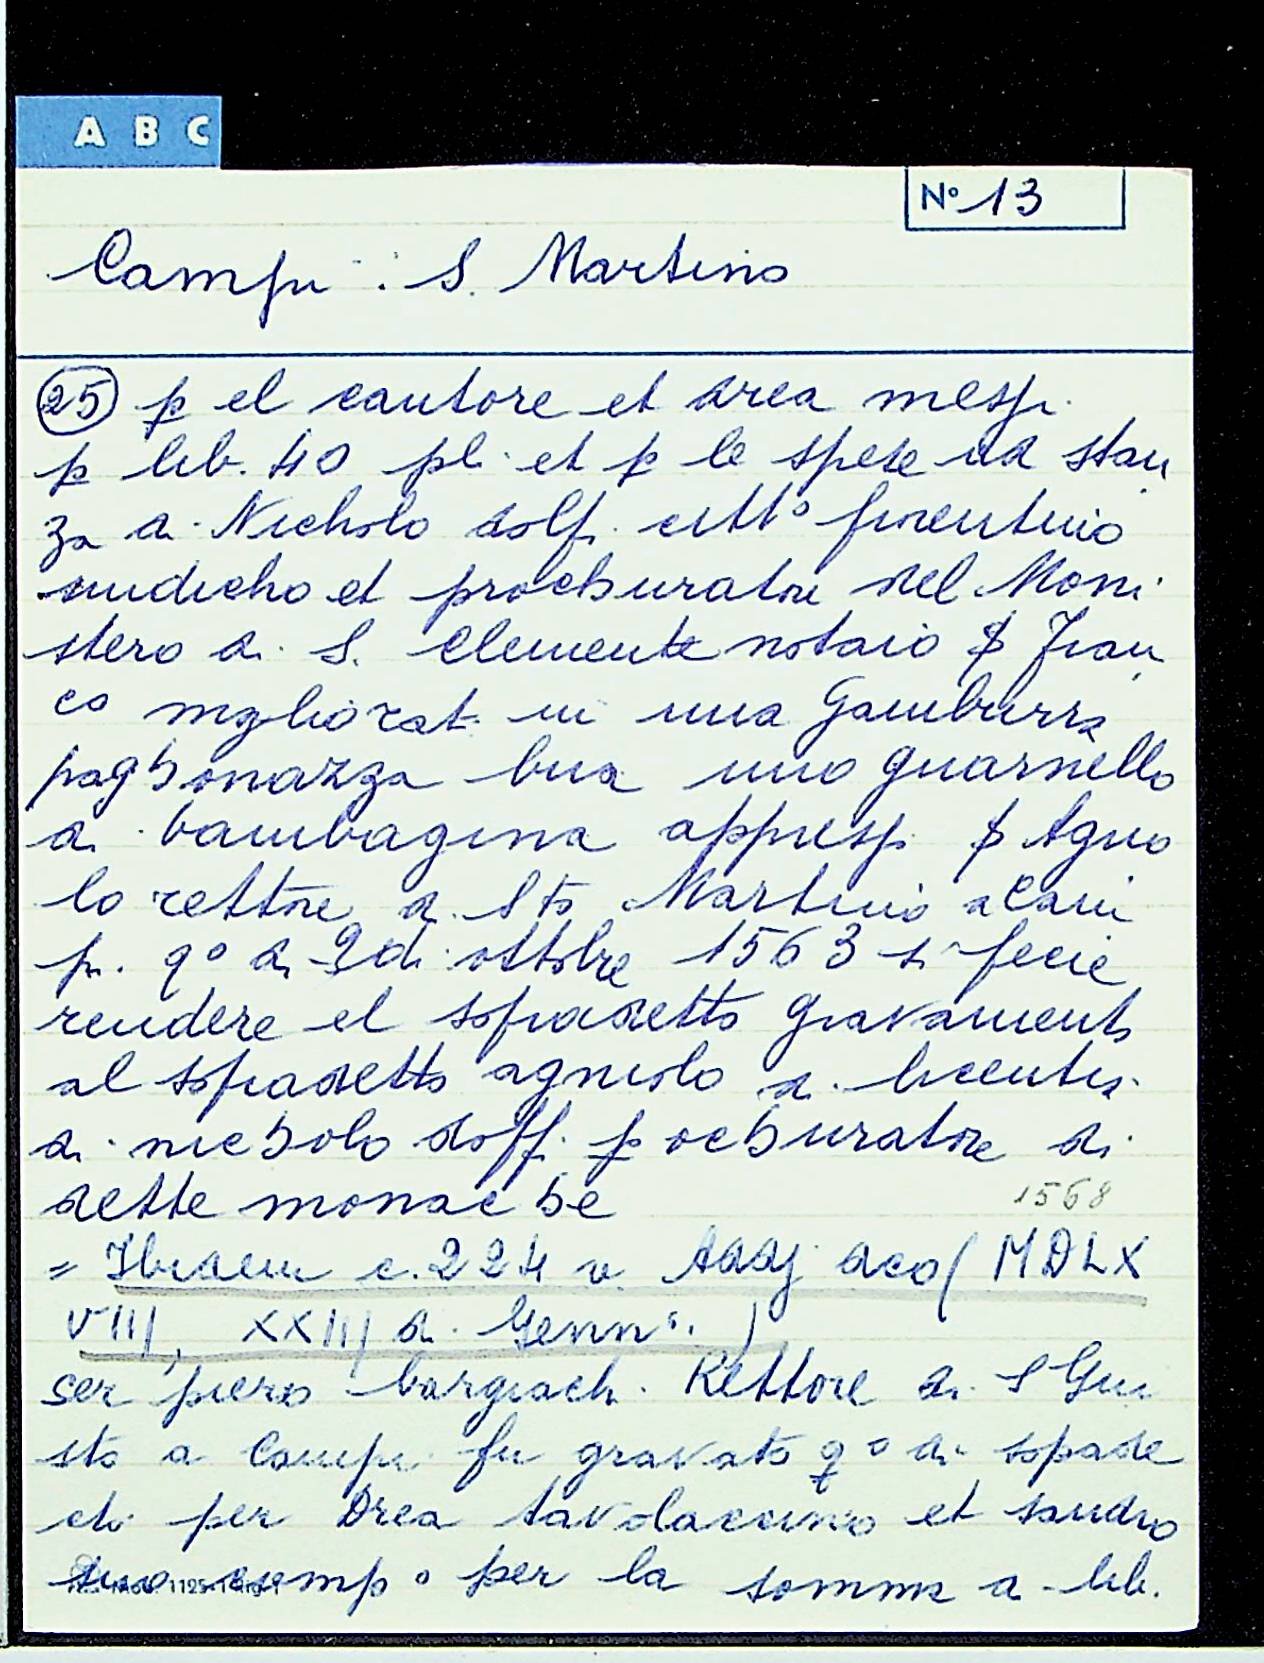 A B C
Nº 13
Campi : S. Martino
25 p el cautore et drea messi
p lib. 40 pl. et p le spese ad stan
za di Nicholo dolfi citt° fiorentino
sindicho et prochuratore del Moni
stero di S. Clemente notaio Fran
co migliorati in una Gamburra
paghonazza bua uno guarnello
di bambagina appresso Agno
lo rettore di Sto Martino a Cam
pi. q° di 9 di ottobre 1563 si fecie
rendere el sopradetto gravamento
al sopradetto agniolo di licentia
di nicholo doffi p ochuratore di
dette monache
1568
= Ibidem c. 224 v. Addj dco ( MDLX
VIII, XXIII di Genn°. )
ser piero bargiach. Rettore di S Giu
sto a Campi fu gravato q° di sopade
cto per Drea tavolaccino et sandro
suo comp° per la somma di lib.